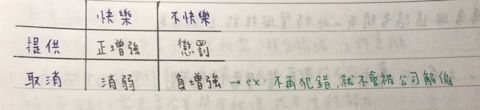 快樂 不快樂
提供 正增強 懲罰
取消 消弱 負增強 → ex 不再犯錯,就不會被公司解僱